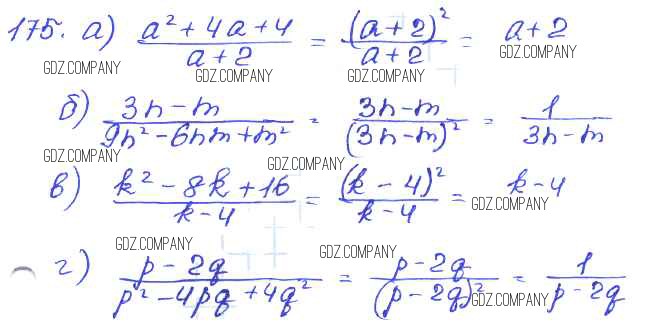 175. а) (a² + 4a + 4)/(a + 2) = (a + 2)²/(a + 2) = a + 2
GDZ.COMPANY GDZ.COMPANY GDZ.COMPANY GDZ.COMPANY
б) (3n − m)/(9n² − 6nm + m²) = (3n − m)/(3n − m)² = 1/(3n − m)
GDZ.COMPANY GDZ.COMPANY
в) (k² − 8k + 16)/(k − 4) = (k − 4)²/(k − 4) = k − 4
GDZ.COMPANY
GDZ.COMPANY GDZ.COMPANY
г) (p − 2q)/(p² − 4pq + 4q²) = (p − 2q)/(p − 2q)² = 1/(p − 2q)
GDZ.COMPANY